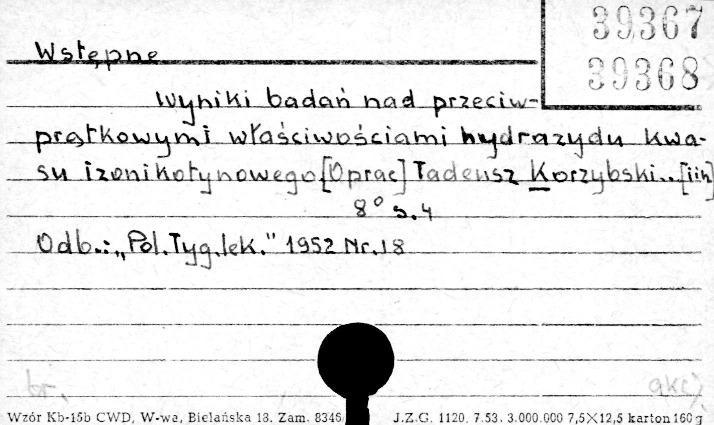 39367
39368
Wstępne
wyniki badań nad przeciw-
prątkowymi właściwościami hydrazydu kwa-
su izonikotynowego [Oprac] Tadeusz Korzybski.. [iin]
8° s. 4
Odb.: „Pol. Tyg. lek." 1952 Nr. 18
br.
akc).
Wzór Kb-15b CWD, W-wa, Bielańska 18. Zam. 8346 J.Z.G. 1120. 7.53. 3.000.000 7,5×12,5 karton 160 g